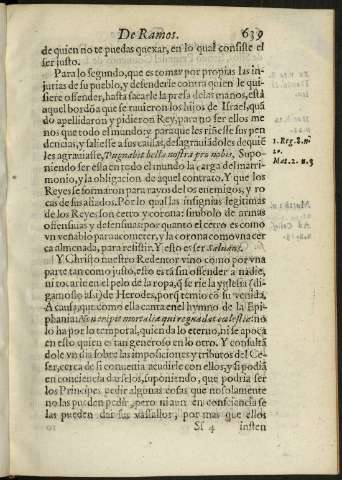 De Ramos. 639
de quien no te puedas quexar, en lo qual consiste el
ser justo.
Para lo segundo, que es tomar por propias las in-
jurias de su pueblo, y defenderle contra quien le qui-
siere ofender, hasta sacarle la presa de las manos, està
aquel bordòn a que se tuuieron los hijos de Israel, quã
do apellidaron y pidieron Rey, para no ser ellos me
nos que todo el mundo: y para que les riñesse sus pen
dencias, y saliesse a sus causas, desagrauiãdoles de quiẽ
les agrauiasse, Pugnabit bella nostra pro nobis, Supo-
niendo ser essa en todo el mundo la carga del matri-
monio, y la obligacion de aquel contrato. Y que los
Reyes se formaron para rayos de los enemigos, y ro
cas de sus aliados. Por lo qual las insignias legitimas
de los Reyes son cetro y corona: simbolo de armas
offensiuas y defensiuas: por quanto el cetro es como
vn venablo para acometer, y la corona como vna cer
ca almenada, para resistir. Y esto es ser Saluans.
Y Christo nuestro Redentor vino como por vna
parte tan como justo, esto està sin offender a nadie,
ni tocarle en el pelo de la ropa, q̃ se rie la yglesia (di
gamoslo assi) de Herodes, porq̃ temio cõ su venida.
A causa, que como ella canta en el hymno de la Epi
phania: Non eripit mortalia qui regna dat cælestia: no
lo ha por lo temporal, quien da lo eterno, ni se apoca
en esto quien es tan generoso en lo otro. Y consultã
dole vn dia sobre las imposiciones y tributos del Ce-
sar, cerca de si conuenia acudirle con ellos, y si podiã
en conciencia darselos, suponiendo, que podria ser
los Principes pedir algunas cosas que no solamente
no las pueden pedir, pero ni aun en consciencia se
las pueden dar sus vassallos, por mas que ellos
Sf 4 insten
1. Reg. 8. nº
20.
Mat. 2. n. 3